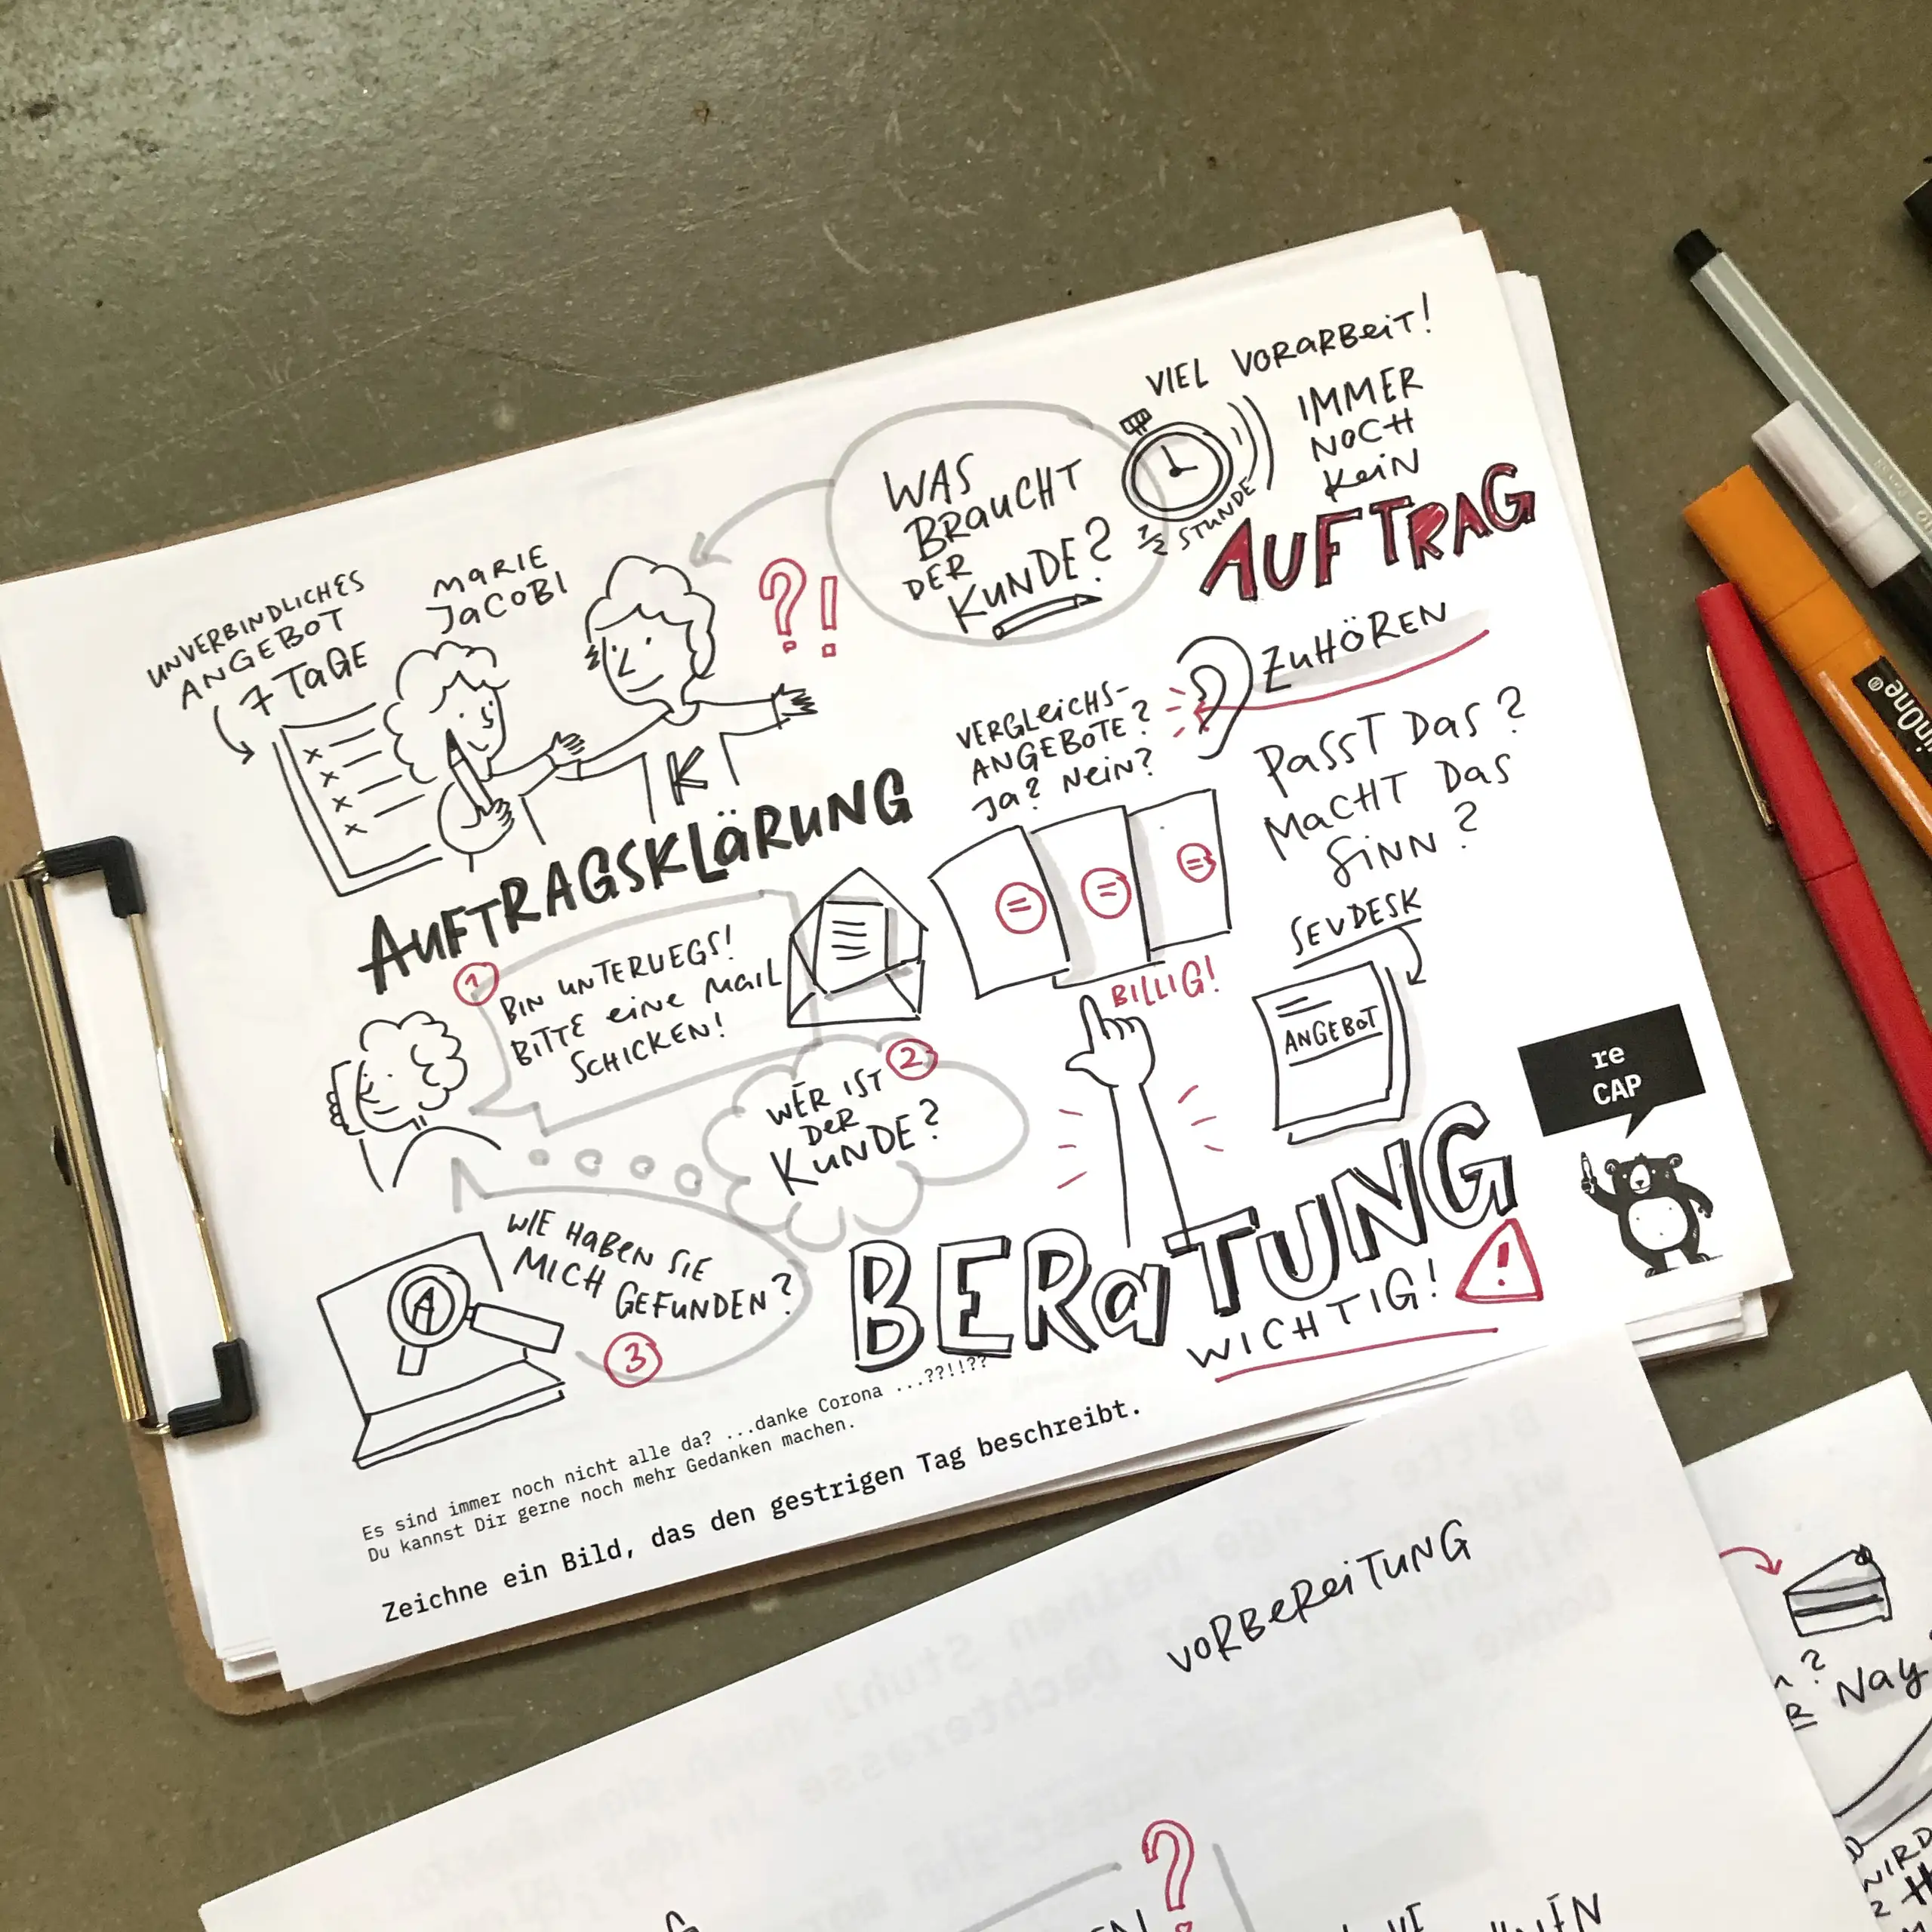 VIEL VORARBEIT!
IMMER
NOCH
KEIN
AUFTRAG
1/2 STUNDE
WAS
BRAUCHT
DER
KUNDE?
?!
UNVERBINDLICHES
ANGEBOT
7 TAGE
MARIE
JACOBI
K
AUFTRAGSKLÄRUNG
ZUHÖREN
VERGLEICHS-
ANGEBOTE?
JA? NEIN?
PASST DAS?
MACHT DAS
SINN?
= = =
BILLIG!
SEVDESK
ANGEBOT
1
BIN UNTERWEGS!
BITTE EINE MAIL
SCHICKEN!
2
WER IST
DER
KUNDE?
WIE HABEN SIE
MICH GEFUNDEN?
3
A
BERATUNG
WICHTIG!
!
re
CAP
Es sind immer noch nicht alle da? ...danke Corona ...??!!??
Du kannst Dir gerne noch mehr Gedanken machen.
Zeichne ein Bild, das den gestrigen Tag beschreibt.
VORBEREITUNG
?
Nay
WIRD